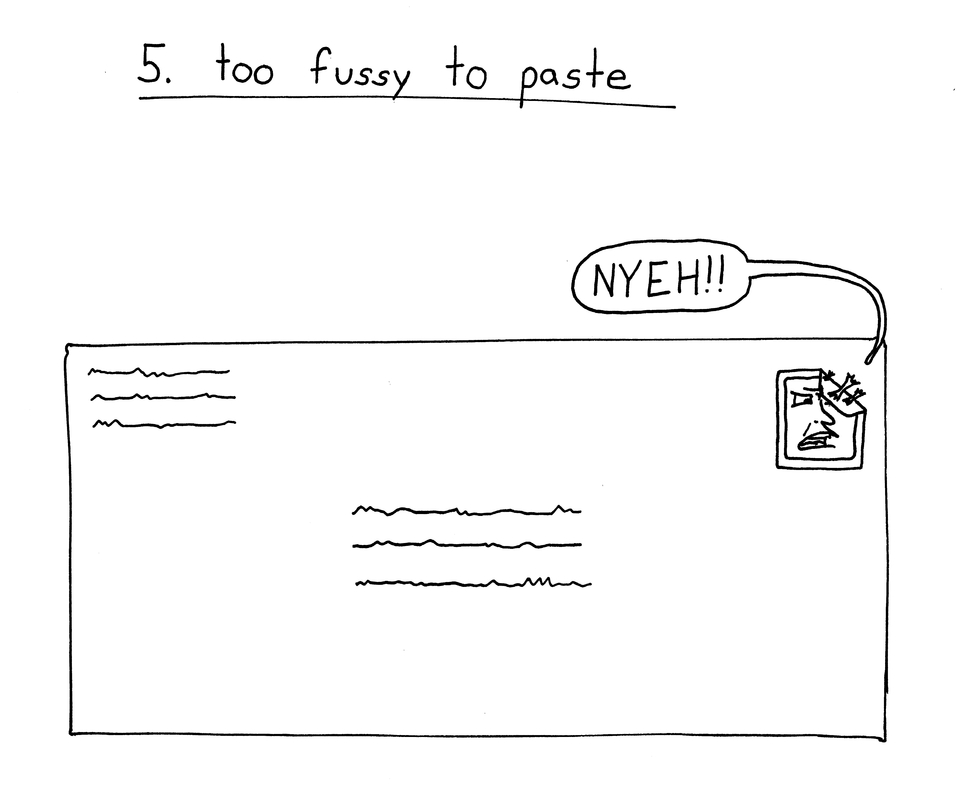 5. too fussy to paste
NYEH!!